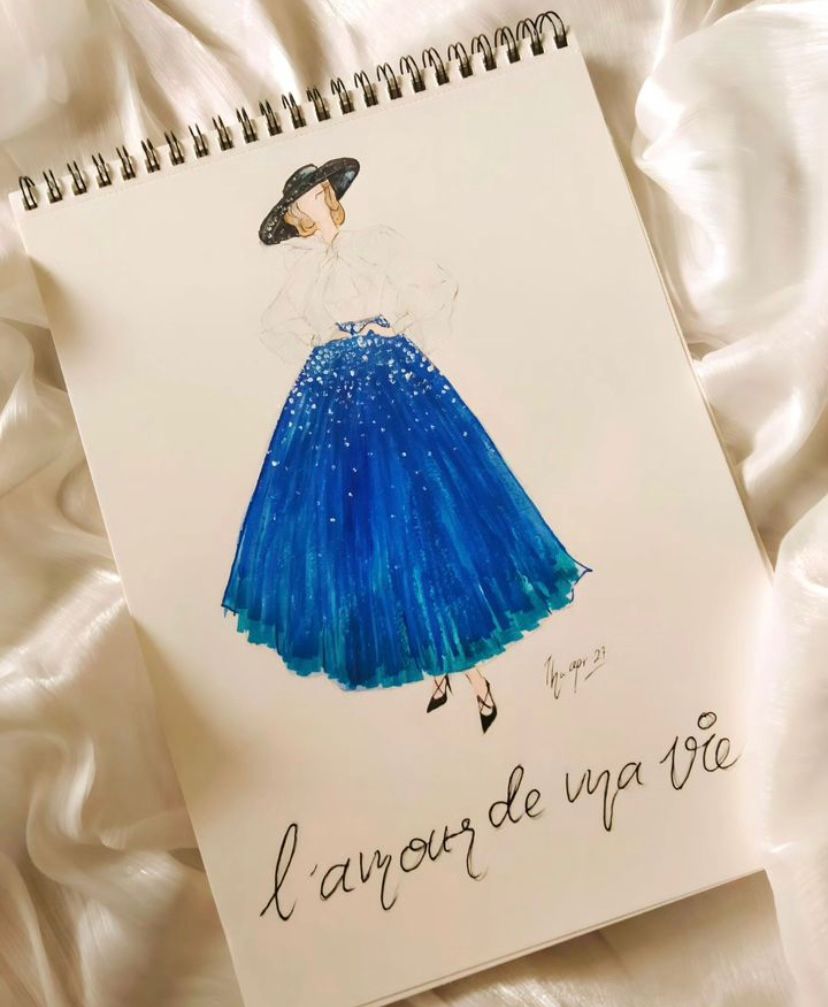 apr 23
l'amour de ma vie